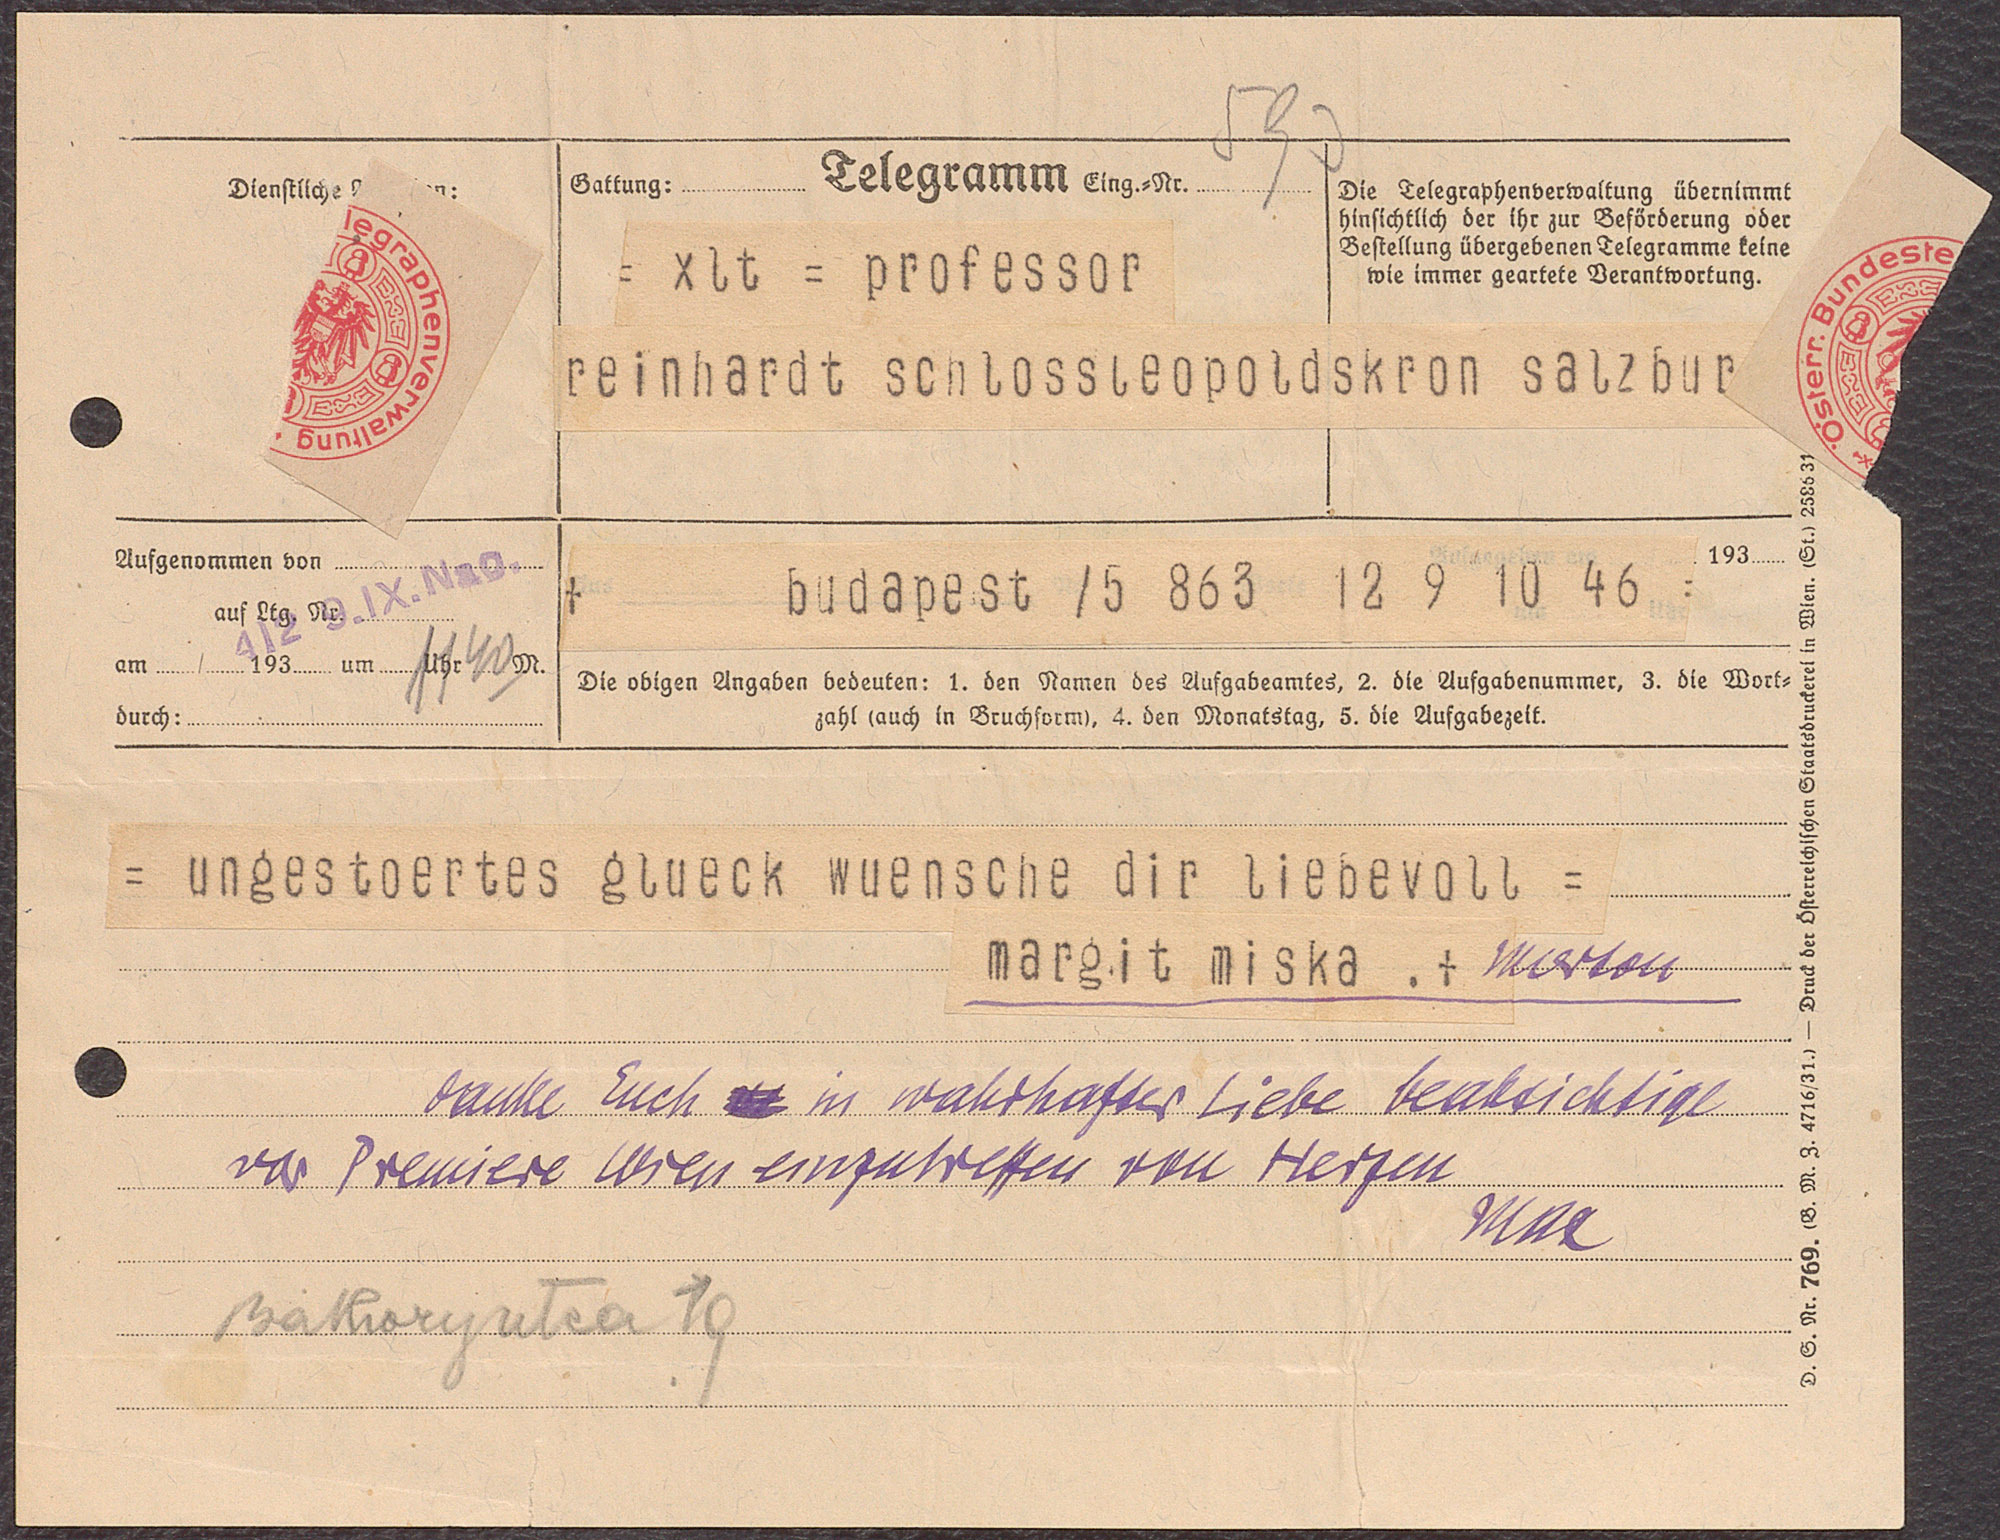 590
Dienstliche
Gattung: Telegramm Eing.-Nr.
Die Telegraphenverwaltung übernimmt
hinsichtlich der ihr zur Beförderung oder
Bestellung übergebenen Telegramme keine
wie immer geartete Verantwortung.
legraphenverwaltung
Österr. Bundeste
= xlt = professor
reinhardt schlossleopoldskron salzbur
Aufgenommen von
auf Ltg. Nr.
412 9.IX.
am / 193 um Uhr M.
1140
durch:
193
+ budapest /5 863 12 9 10 46 =
Die obigen Angaben bedeuten: 1. den Namen des Aufgabeamtes, 2. die Aufgabenummer, 3. die Wort-
zahl (auch in Bruchform), 4. den Monatstag, 5. die Aufgabezeit.
= ungestoertes glueck wuensche dir liebevoll =
margit miska .+ Marton
danke Euch in wahrhafter Liebe beabsichtige
vor Premiere Wien einzutreffen von Herzen
Max
Bakony utca 19
D. S. Nr. 769. (B. M. Z. 4716/31.) — Druck der Österreichischen Staatsdruckerei in Wien. (St.) 2586 31